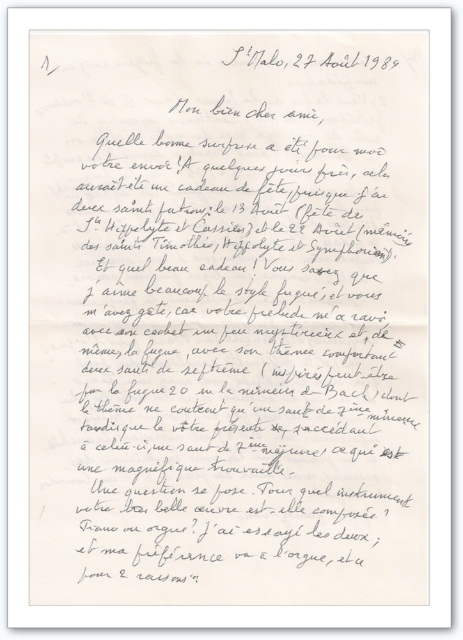 1/
St Malo, 27 Août 1984
Mon bien cher ami,
Quelle bonne surprise a été pour moi
votre envoi! A quelques jours près, cela
aurait été un cadeau de fête, puisque j'ai
deux saints patrons: le 13 Août (fête de
St Hippolyte et Cassien) et le 22 Août (mémoire
des saints Timothée, Hippolyte et Symphorien).
Et quel beau cadeau! Vous savez que
j'aime beaucoup le style fugué, et vous
m'avez gâté, car votre prélude m'a ravi
avec son cachet un peu mystérieux et, de
même, la fugue, avec son thème comportant
deux sauts de septième (inspirés peut-être
par la fugue 20 en la mineur de Bach) dont
le thème ne contient qu'un saut de 7ème mineure
tandis que le vôtre présente succédant
à celui-ci, un saut de 7ème majeure, ce qui est
une magnifique trouvaille.
Une question se pose. Pour quel instrument
votre très belle œuvre est-elle composée?
Piano ou orgue? J'ai essayé les deux;
et ma préférence va à l'orgue, et ce
pour 2 raisons: